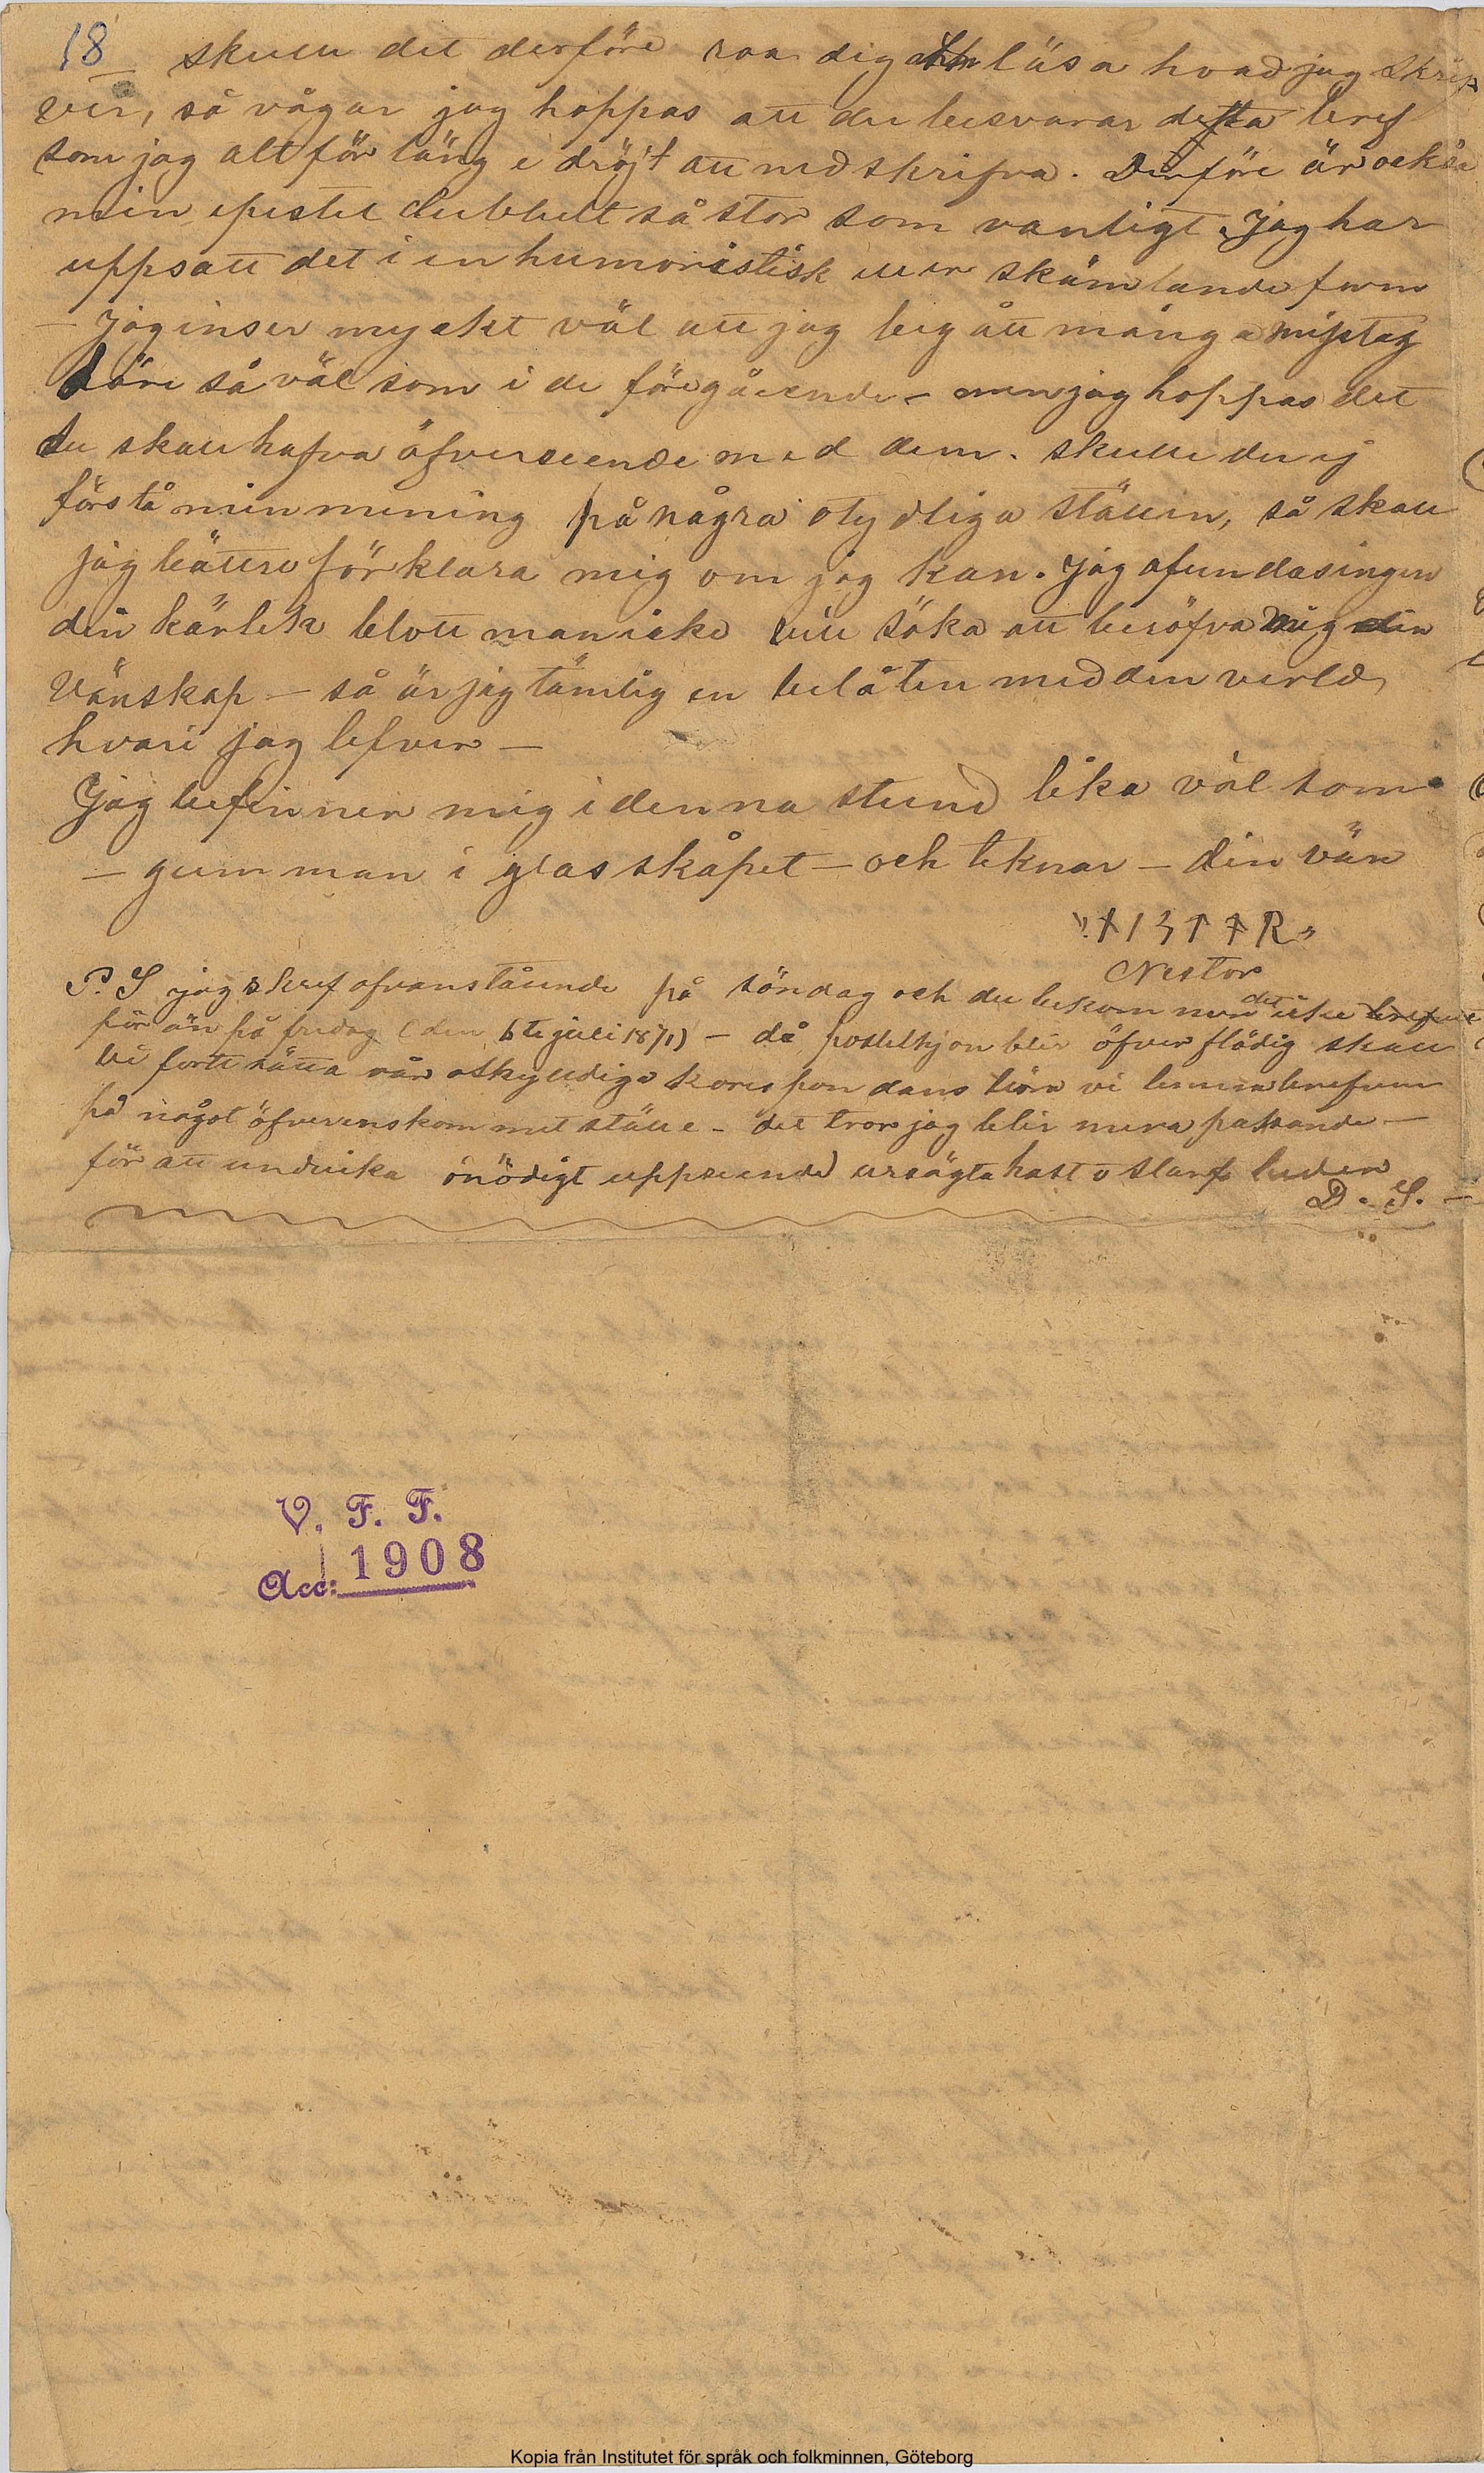 18 skulle det derföre roa dig att läsa hvad jag skrif
ver, så vågar jag hoppas att du besvarar detta bref
som jag alt för länge dröjt att nedskrifva. Derföre är också
min epistel dubbelt så stor som vanligt. Jag har
uppsatt det i en humoristisk eller skämtande form
— Jag inser myckt väl att jag begått många misstag
häri så väl som i de föregående – men jag hoppas det
du skall hafva öfverseende med dem. skulle du ej
förstå min mening på några otydliga ställen, så skall
jag bättre förklara mig om jag kan. Jag afundas ingen
din kärlek blott man icke vill söka att beröfva mig din
Vänskap — så är jag tämligen belåten med den verld,
hvari jag lefver —
Jag befinner mig i denna stund lika väl som
— gumman i glasskåpet — och teknar — din vän
Nestor
P. S jag skref ofvanstående på söndag och du bekom det icke
för än på fredag (den 6te juli 1871) — då postiljon blir öfverflödig skall
vi fortsätta vår oskyldiga korespondans böra vi lemna brefven
på något öfverenskommet ställe – det tror jag blir mera passande —
för att undvika onödigt uppseende ursägta hast o slarf
D. S. —
V. F. F.
Acc: 1908
Kopia från Institutet för språk och folkminnen, Göteborg